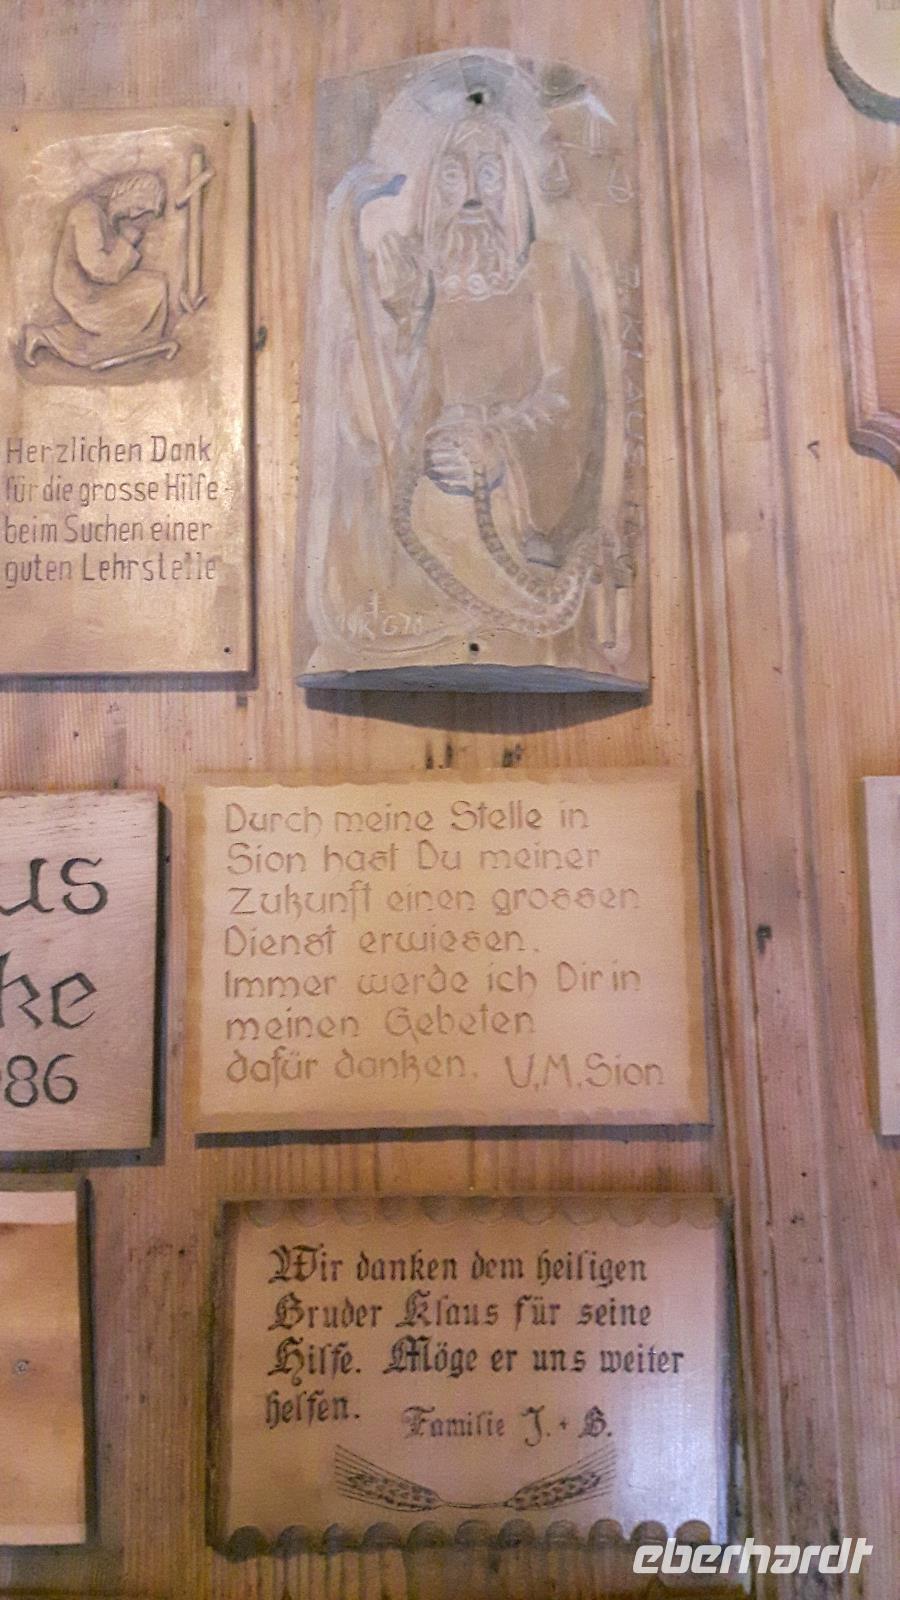 Herzlichen Dank
für die grosse Hilfe
beim Suchen einer
guten Lehrstelle
B. KLAUS
us
ke
86
Durch meine Stelle in
Sion hast Du meiner
Zukunft einen grossen
Dienst erwiesen.
Immer werde ich Dir in
meinen Gebeten
dafür danken. U.M. Sion
Wir danken dem heiligen
Bruder Klaus für seine
Hilfe. Möge er uns weiter
helfen. Familie J. + B.
eberhardt